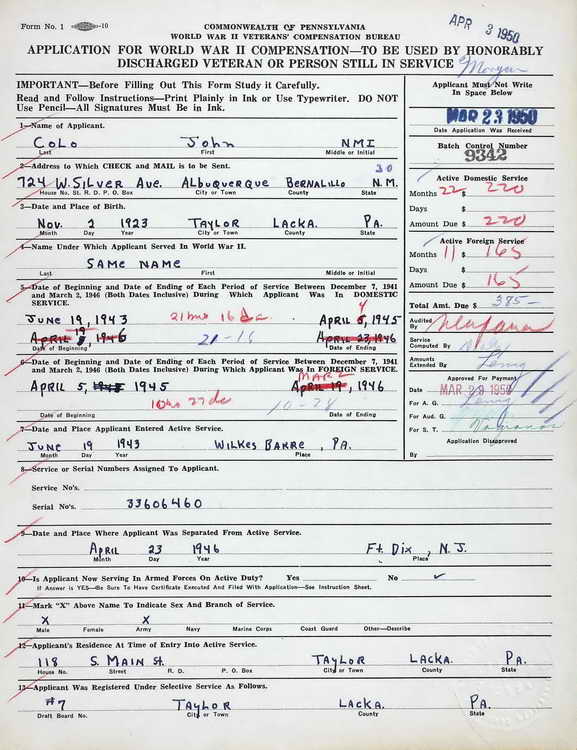 Form No. 1 -10
COMMONWEALTH OF PENNSYLVANIA
WORLD WAR II VETERANS' COMPENSATION BUREAU
APR 3 1950
APPLICATION FOR WORLD WAR II COMPENSATION—TO BE USED BY HONORABLY
DISCHARGED VETERAN OR PERSON STILL IN SERVICE
IMPORTANT—Before Filling Out This Form Study it Carefully.
Read and Follow Instructions—Print Plainly in Ink or Use Typewriter. DO NOT
Use Pencil—All Signatures Must Be in Ink.
Applicant Must Not Write
In Space Below
MAR 23 1950
Date Application Was Received
Batch Control Number
9342
Active Domestic Service
Months 22 $ 220
Days $
Amount Due $ 220
Active Foreign Service
Months 11 $ 165
Days $
Amount Due $ 165
Total Amt. Due $ 385—
Audited
By
Service
Computed By
Amounts
Extended By
Approved For Payment
Date MAR 29 1950
For A. G.
For Aud. G.
For S. T.
Application Disapproved
By
1—Name of Applicant.
COLO JOHN NMI
Last First Middle or Initial
2—Address to Which CHECK and MAIL is to be Sent.
30
724 W. SILVER AVE. ALBUQUERQUE BERNALILLO N.M.
House No. St. R. D. P. O. Box City or Town County State
3—Date and Place of Birth.
NOV. 2 1923 TAYLOR LACKA. PA.
Month Day Year City or Town County State
4—Name Under Which Applicant Served In World War II.
SAME NAME
Last First Middle or Initial
5—Date of Beginning and Date of Ending of Each Period of Service Between December 7, 1941
and March 2, 1946 (Both Dates Inclusive) During Which Applicant Was In DOMESTIC
SERVICE.
4
JUNE 19, 1943 21 mo 16 da. APRIL 5, 1945
19
APRIL 1946 21-16 APRIL 23, 1946
Date of Beginning Date of Ending
6—Date of Beginning and Date of Ending of Each Period of Service Between December 7, 1941
and March 2, 1946 (Both Dates Inclusive) During Which Applicant Was In FOREIGN SERVICE.
MAR 2
APRIL 5, 1945 1945 APRIL 19, 1946
10 mo 27 da 10-28
Date of Beginning Date of Ending
7—Date and Place Applicant Entered Active Service.
JUNE 19 1943 WILKES BARRE, PA.
Month Day Year Place
8—Service or Serial Numbers Assigned To Applicant.
Service No's.
Serial No's. 33606460
9—Date and Place Where Applicant Was Separated From Active Service.
APRIL 23 1946 Ft. DIX, N.J.
Month Day Year Place
10—Is Applicant Now Serving In Armed Forces On Active Duty? Yes No ✓
If Answer is YES—Be Sure To Have Certificate Executed And Filed With Application—See Instruction Sheet.
11—Mark "X" Above Name To Indicate Sex And Branch of Service.
X X
Male Female Army Navy Marine Corps Coast Guard Other—Describe
12—Applicant's Residence At Time of Entry Into Active Service.
118 S. MAIN St. TAYLOR LACKA. PA.
House No. Street R. D. P. O. Box City or Town County State
13—Applicant Was Registered Under Selective Service As Follows.
#7 TAYLOR LACKA. PA.
Draft Board No. City or Town County State